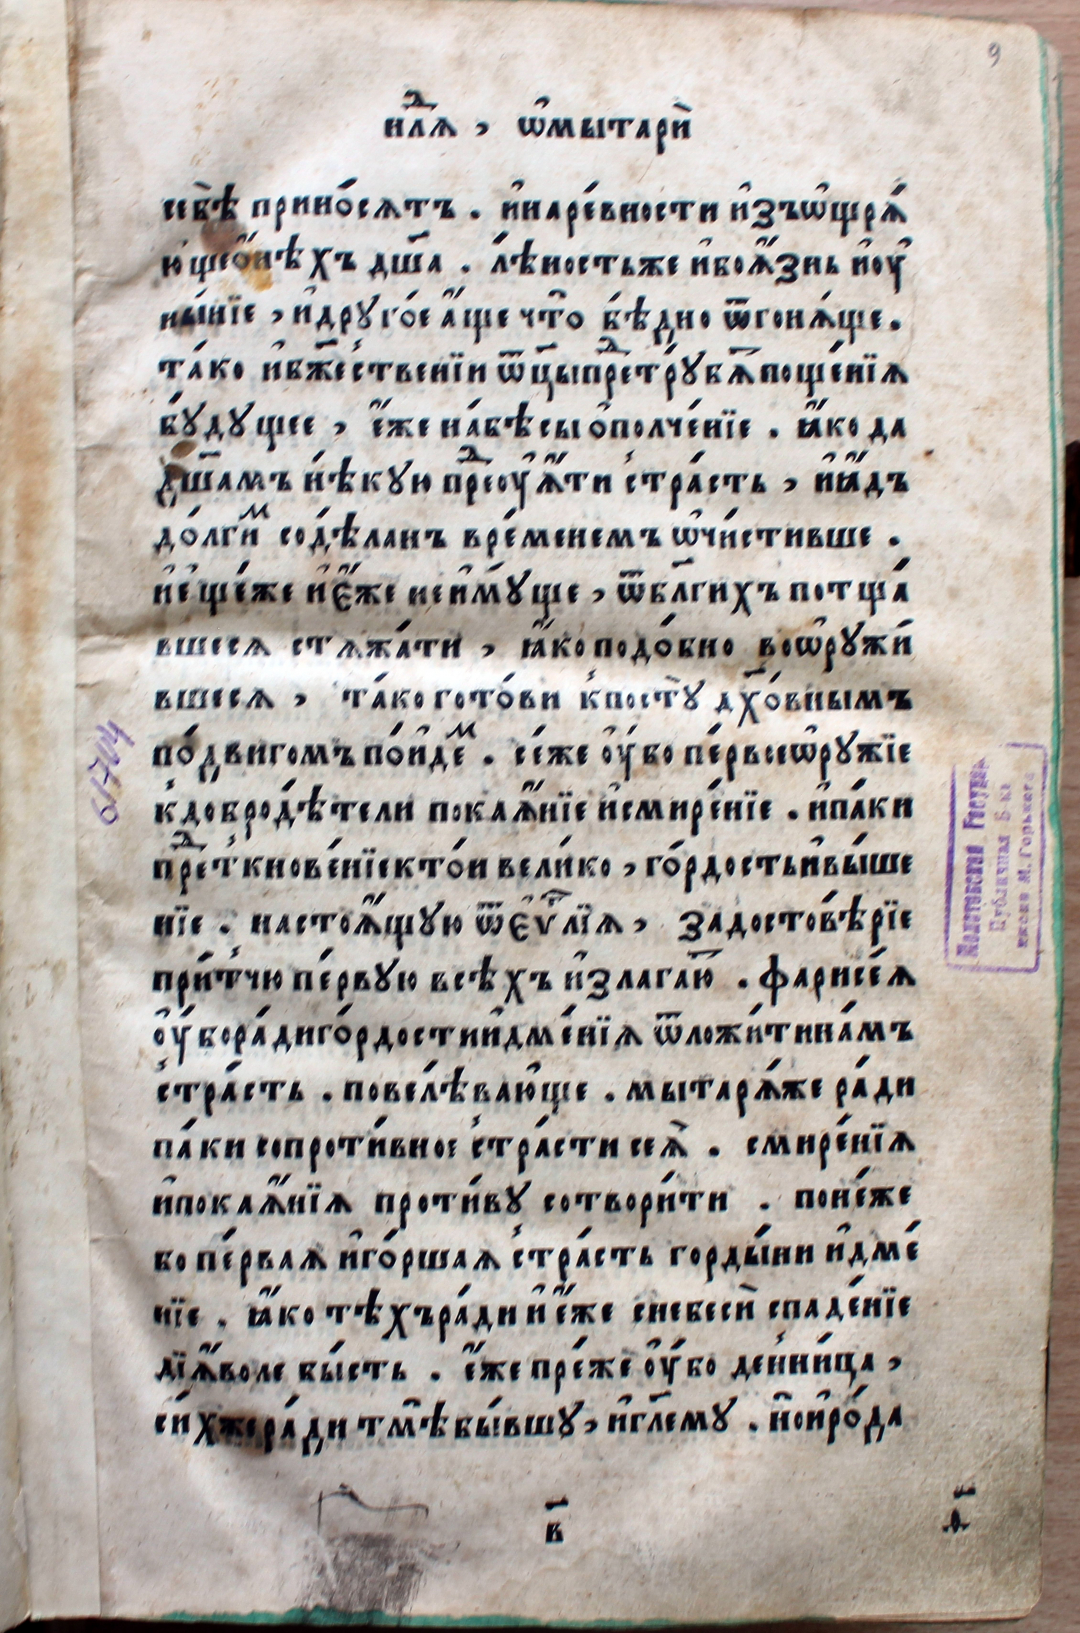 9
нⷣлѧ , ѡ҆мытарѝ
себѣ̀ прино́сѧтъ . и҆наре́вности и҆зъѡщрѧ́
ю҆щео҆́нѣхъ дш҃а . лѣ́ностьже и҆боѧ҆́знь и҆ѹ҆
ны́нїе , и҆дрꙋго́е а҆́ще что̀ бѣ́дно ѿгонѧ́ще .
та́ко и҆бж҃е́ственїи ѿц҃ыпреⷣтрꙋбѧ҃поще́нїѧ
бꙋ́дꙋщее , е҆́же на́бѣсы ѻ҆полче́нїе . ꙗ҆́ко да
дш҃а́мъ нѣ́кꙋю преⷣѹ҆ѧ҆́ти стра́сть , и҆ꙗ҆́дъ
до́лгиⷨ содѣ́ланъ вре́менемъ ѡ҆чи́стивше .
и҆е҆ще́же и҆є҆́же неи҆мꙋ́ще , ѿбл҃ги́хъ потща́
вшесѧ стѧжа́ти , ꙗ҆́ко подо́бно воѡ҆рꙋжи́
вшесѧ , та́ко гото́ви кпостꙋ̀ дх҃о́внымъ
по́двигомъ по́йдеⷨ . се́же ѹ҆́бо пе́рвоеѡ҆рꙋ́жїе
кдоброд́ѣтели покаѧ҆́нїе и҆смире́нїе . и҆па́ки
преⷣткнове́нїекто́и вели́ко , го́рдостьи҆вы́ше
нїе . настоѧ҆́щꙋю ѿє҆ѵⷢ҇лїѧ , задостовѣ́рїе
при́тчю пе́рвꙋю всѣ́хъ и҆злага́ю҃ . фарисе́ѧ
ѹ҆́бора́диго́рдостии҆дме́нїѧ ѿложи́тина́мъ
стра́сть . повелѣ́вающе . мытарѧ́же ра́ди
па́ки сопроти́вное стра́сти сеѧ̀ . смире́нїѧ
и҆покаѧ҆́нїѧ проти́вꙋ сотвори́ти . поне́же
бо пе́рваѧ и҆го́ршаѧ стра́сть горды́ни и҆дме́
нїе . ꙗ҆́ко тѣ́хъра́ди и҆е҆́же снебесѝ спаде́нїе
дїѧ҆́воле бы́сть . е҆́же пре́же ѹ҆́бо денни́ца ,
си́хжера́ди тмѣ̀ бы́вшꙋ , и҆гл҃емꙋ . и҆ѻ҆и҆ро́да
в҃
ѳ҃
61704
Молотовская Государ
Публичная Б-ка
имени М. Горького